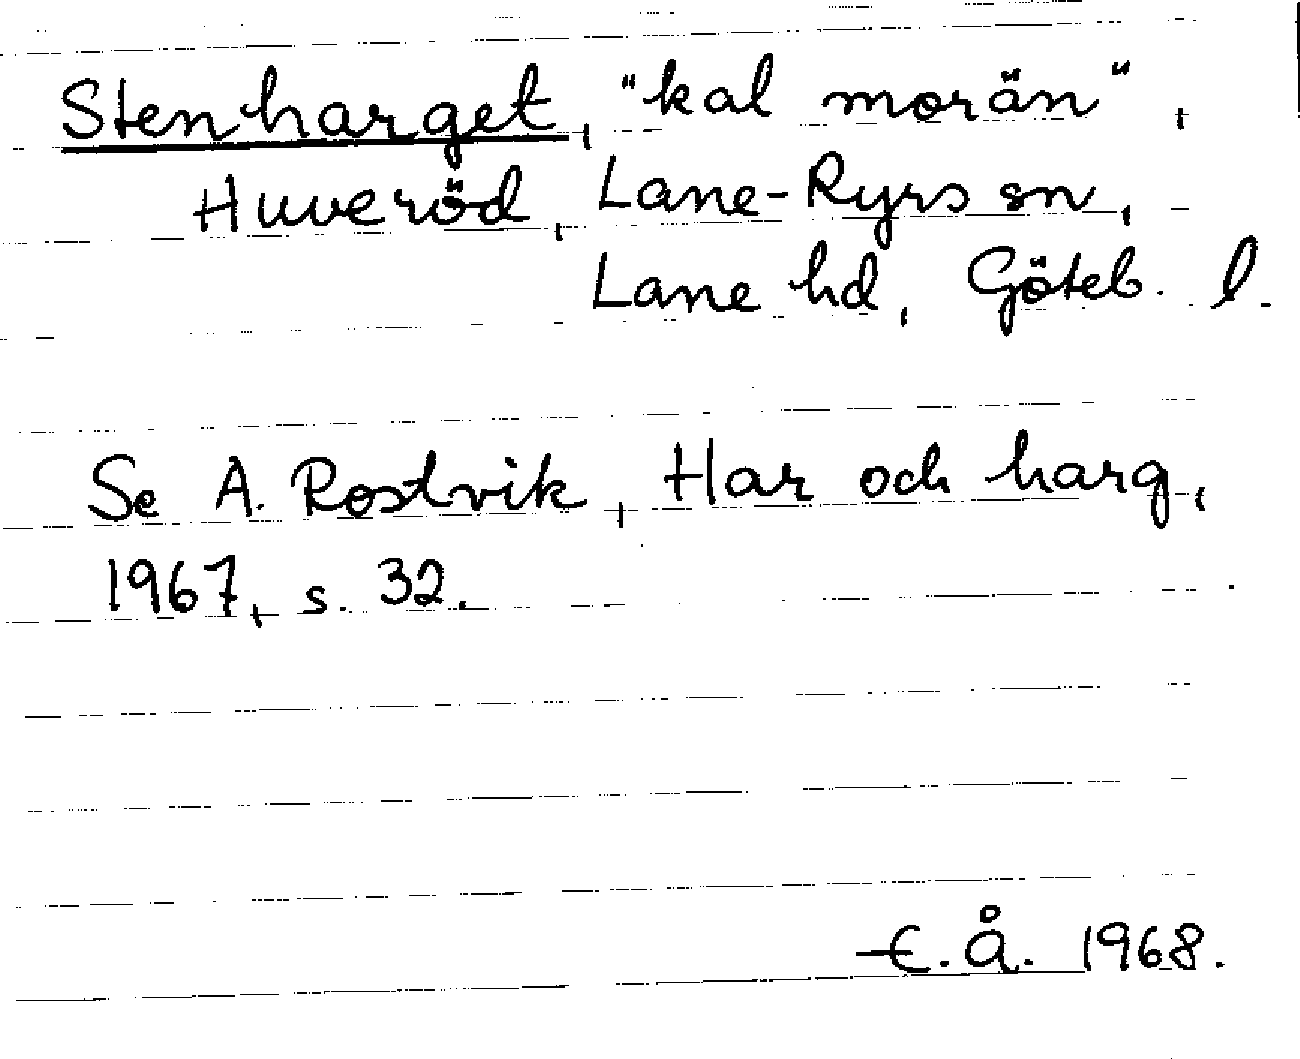 Stenharget, "kal morän",
Huveröd, Lane-Ryrs sn,
Lane hd, Göteb. l.
Se A. Rostvik, Har och harg,
1967, s. 32.
E.Å. 1968.